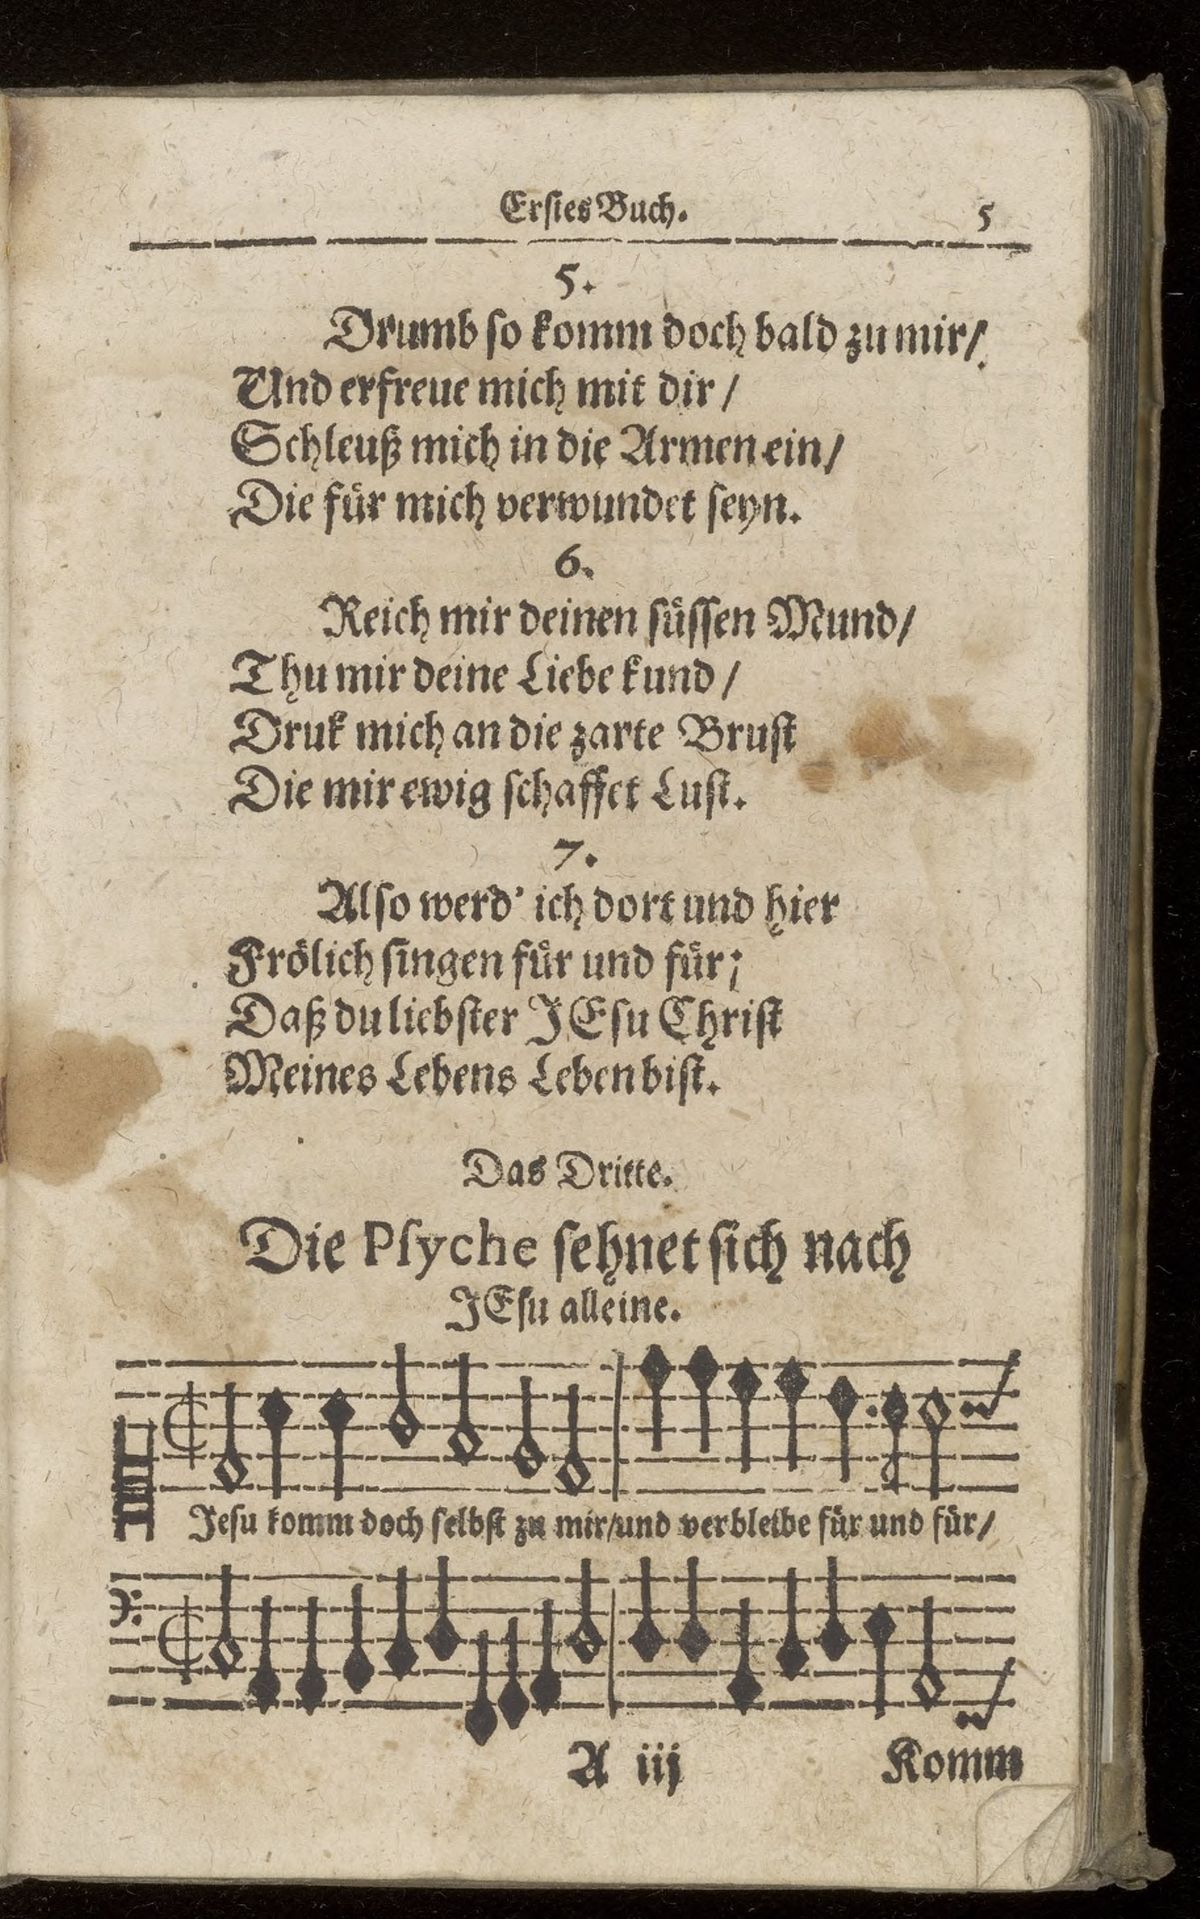 Erstes Buch. 5
5.
Drumb so komm doch bald zu mir/
Und erfreue mich mit dir/
Schleuß mich in die Armen ein/
Die für mich verwundet seyn.
6.
Reich mir deinen süssen Mund/
Thu mir deine Liebe kund/
Druk mich an die zarte Brust
Die mir ewig schaffet Lust.
7.
Also werd' ich dort und hier
Frölich singen für und für;
Daß du liebster JEsu Christ
Meines Lebens Leben bist.
Das Dritte.
Die Psyche sehnet sich nach
JEsu alleine.
Jesu komm doch selbst zu mir/und verbleibe für und für/
A iij Komm